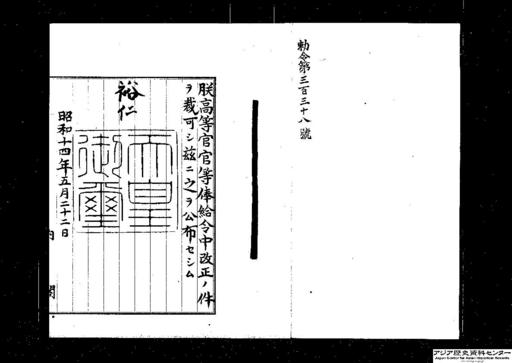 勅令第三百三十八號
朕高等官官等俸給令中改正ノ件
ヲ裁可シ玆ニ之ヲ公布セシム
裕仁
天皇
御璽
昭和十四年五月二十二日
内閣
アジア歴史資料センター
Japan Center for Asian Historical Records